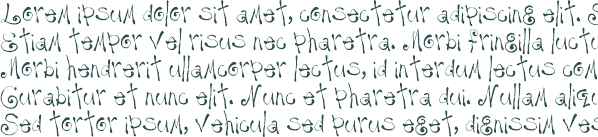 Lorem ipsum dolor sit amet, consectetur adipiscing elit. S
Etiam tempor vel risus nec pharetra. Morbi fringilla luctu
Morbi hendrerit ullamcorper lectus, id interdum lectus com
Curabitur et nunc elit. Nunc et pharetra dui. Nullam aliqu
Sed tortor ipsum, vehicula sed purus eget, dignissim ves